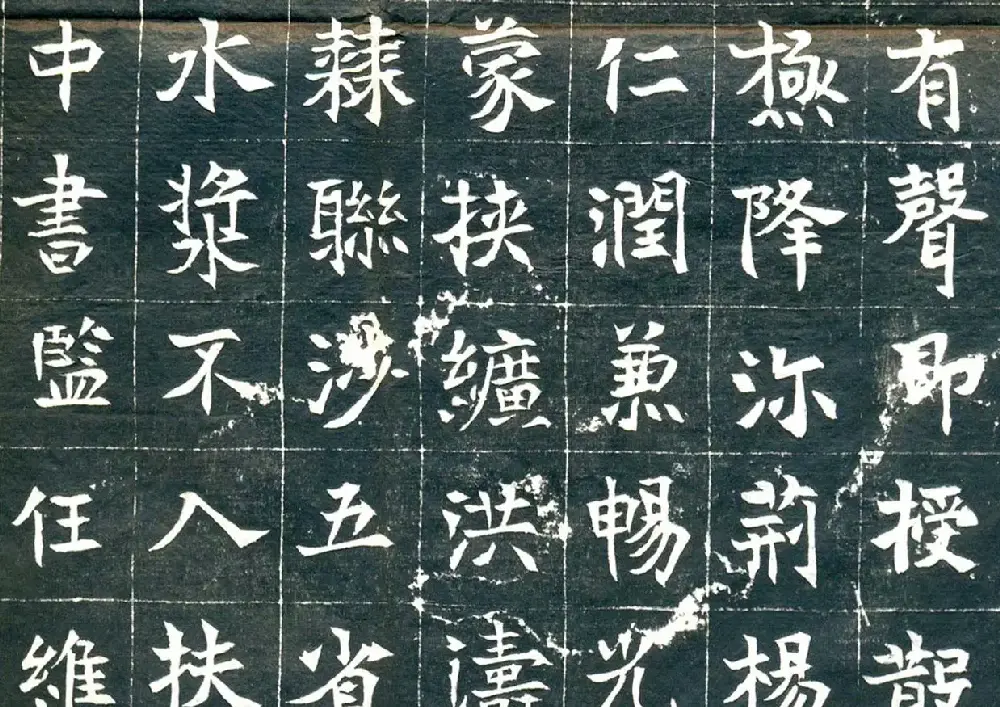 有聲即授散
極降沵荊楊
仁潤兼暢光
蒙挾纊洪濤
聯涉五省
水漿不入扶
中書監任維